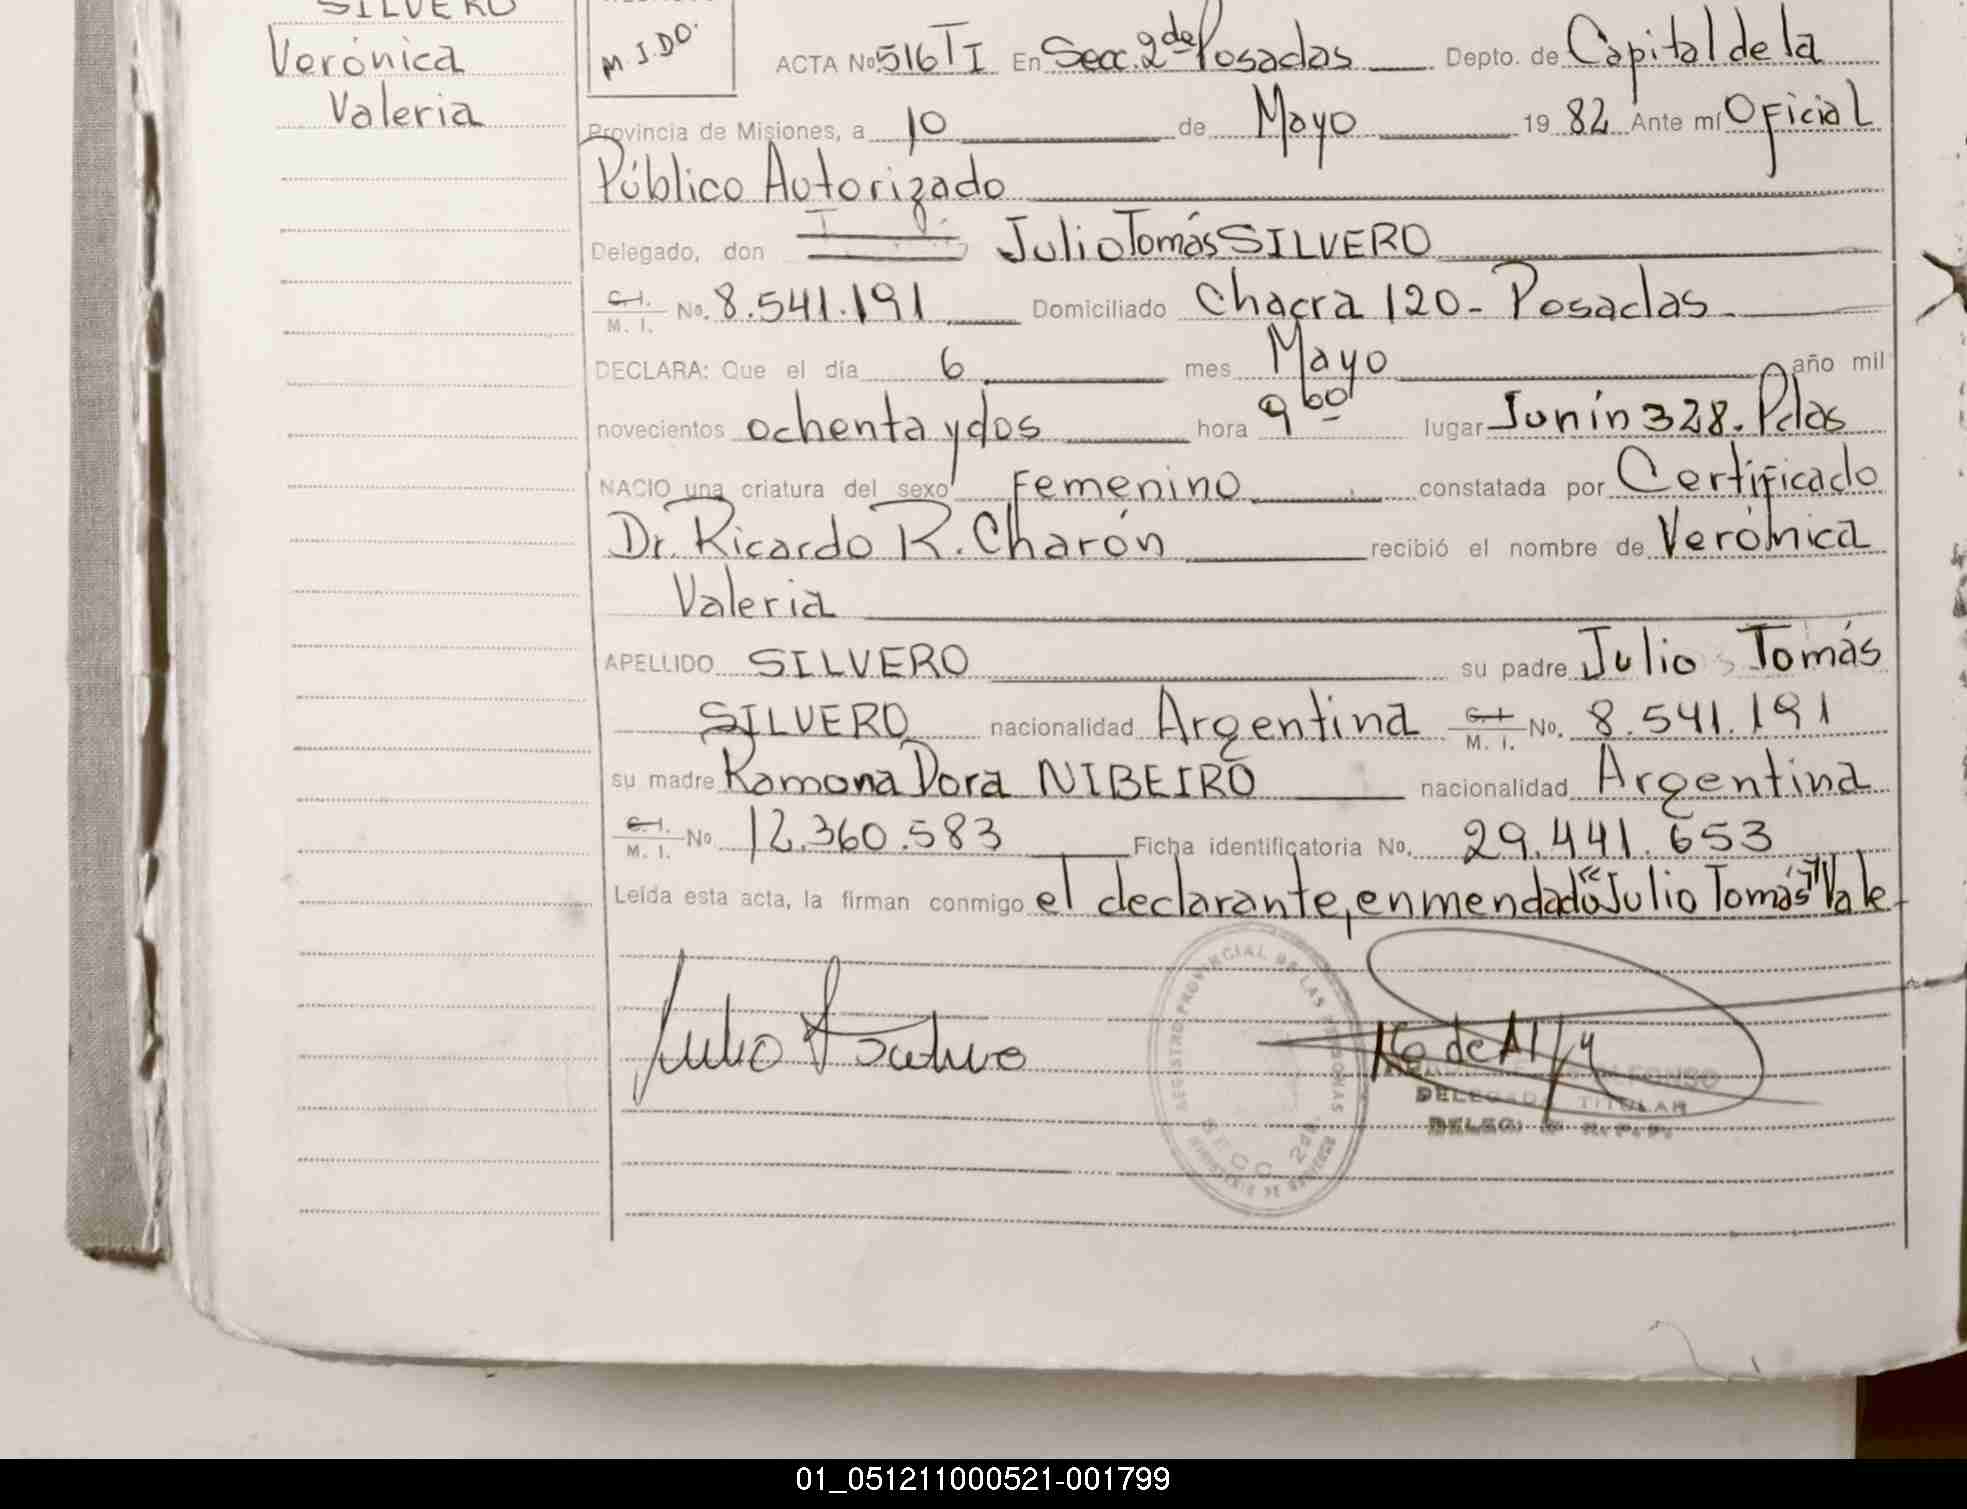 SILVERO
Verónica
Valeria
M.I.DO.
ACTA No 516 TI En Secc. 2da Posadas Depto. de Capital de la
Provincia de Misiones, a 10 de Mayo 19 82 Ante mí Oficial
Público Autorizado
Delegado, don Julio Tomás SILVERO
C.I. M. I. No. 8.541.191 Domiciliado Chacra 120 - Posadas
DECLARA: Que el día 6 mes Mayo año mil
novecientos ochenta y dos hora 9 00 lugar Junín 328. Pdas
NACIO una criatura del sexo Femenino constatada por Certificado
Dr. Ricardo R. Charón recibió el nombre de Verónica
Valeria
APELLIDO SILVERO su padre Julio Tomás
SILVERO nacionalidad Argentina C.I. M. I. No. 8.541.191
su madre Ramona Dora NIBEIRO nacionalidad Argentina
C.I. M. I. No 12.360.583 Ficha identificatoria No. 29.441.653
Leída esta acta, la firman conmigo el declarante, enmendado "Julio Tomás" Vale
REGISTRO PROVINCIAL DE LAS PERSONAS
SECC. 2da
DELEGADA TITULAR
01_051211000521-001799